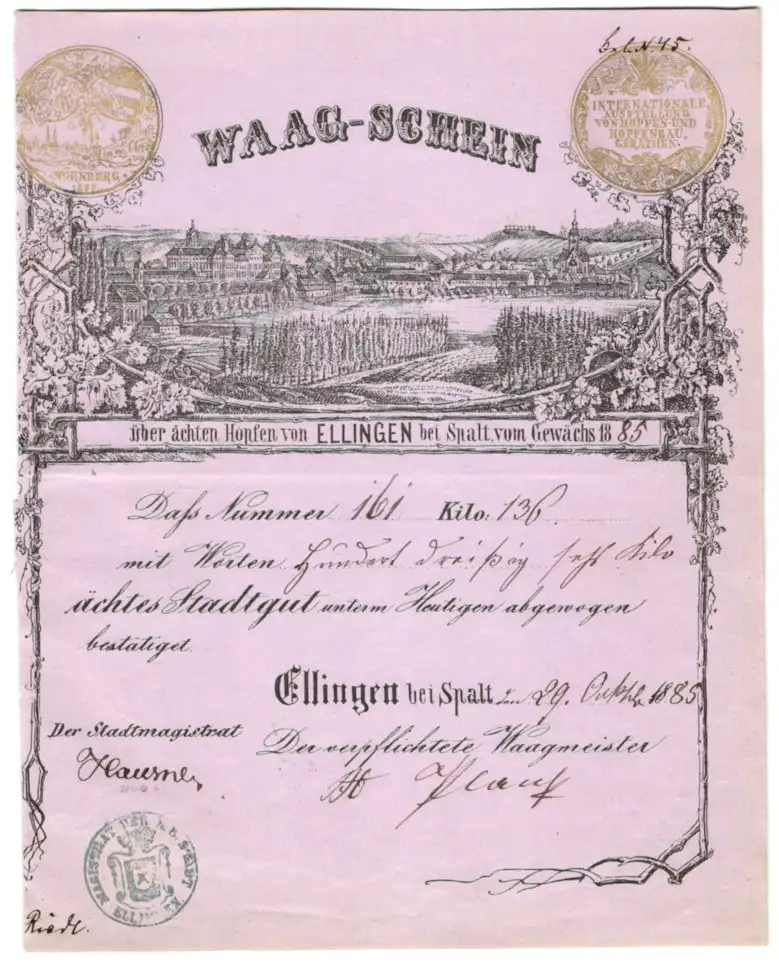 N. 45.
NÜRNBERG
INTERNATIONALE
AUSSTELLUNG
VON HOPFEN UND
HOPFENBAU
GERÄTHEN.
WAAG-SCHEIN
über ächten Hopfen von ELLINGEN bei Spalt, vom Gewächs 1885
Daß Nummer 161 Kilo: 136
mit Worten Hundert dreißig sechs Kilo
ächtes Stadtgut unterm Heutigen abgewogen
bestätiget.
Ellingen bei Spalt, den 29. Oktbr 1885
Der Stadtmagistrat
Der verpflichtete Waagmeister
MAGISTRAT DER K. B. STADT
Riedl.